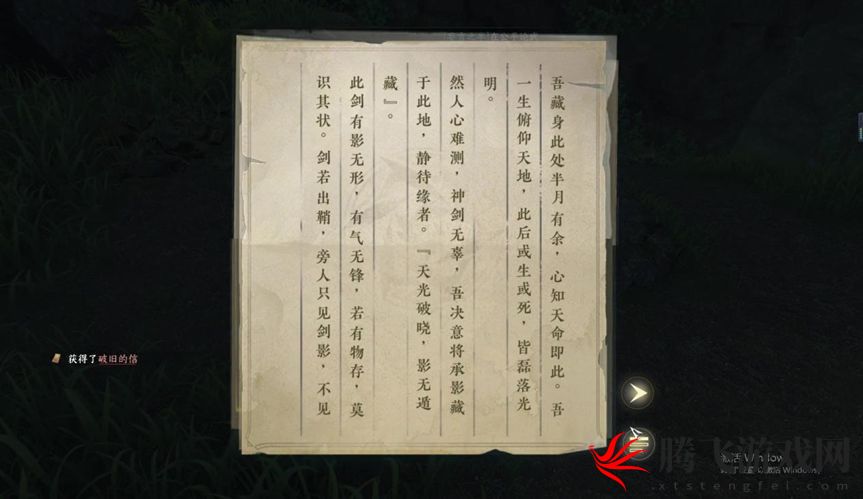 吾藏身此处半月有余，心知天命即此。吾
一生俯仰天地，此后或生或死，皆磊落光
明。
然人心难测，神剑无辜，吾决意将承影藏
于此地，静待缘者。『天光破晓，影无遁
藏』。
此剑有影无形，有气无锋，若有物存，莫
识其状。剑若出鞘，旁人只见剑影，不见
获得了破旧的信
腾飞游戏网
www.xtstengfei.com
激活 Window